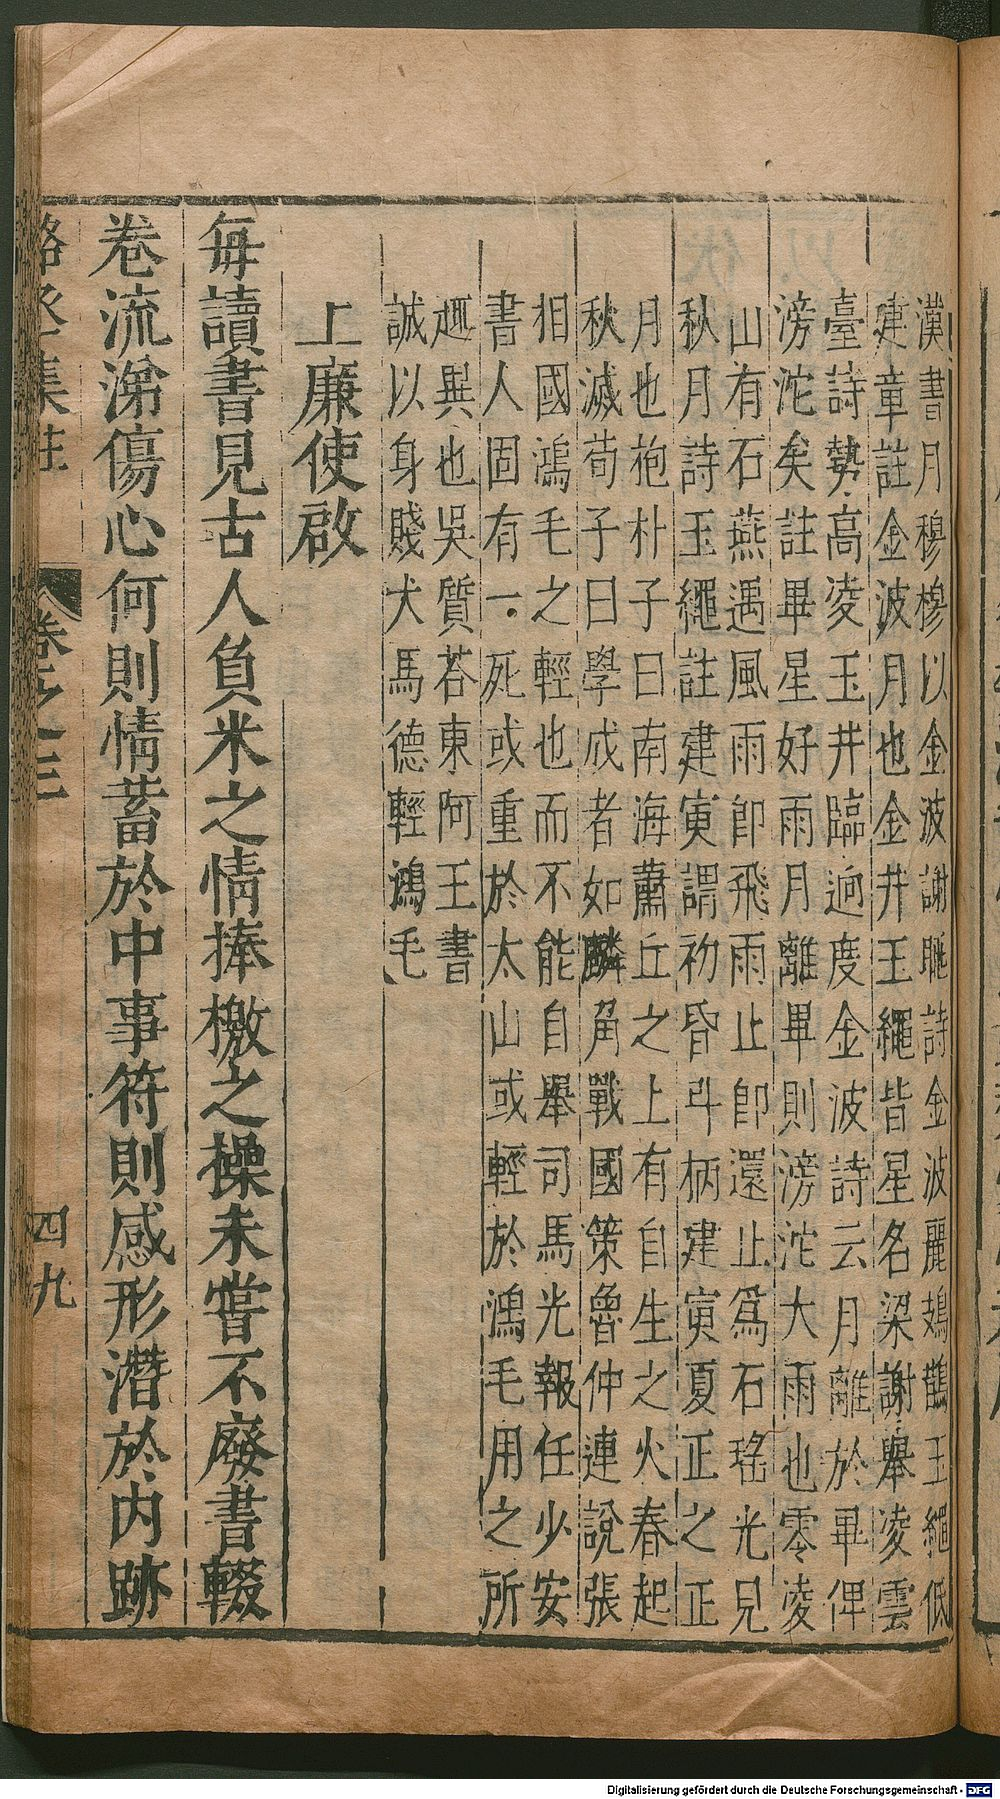 漢書月穆穆以金波謝眺詩金波麗鳷鵲玉繩低
建章註金波月也金井玉繩皆星名梁謝舉凌雲
臺詩勢高凌玉井臨迥度金波詩云月離於畢俾
滂沱矣註畢星好雨月離畢則滂沱大雨也零凌
山有石燕遇風雨即飛雨止即還止爲石瑤光見
秋月詩玉繩註建寅謂初昏斗柄建寅夏正之正
月也抱朴子曰南海蕭丘之上有自生之火春起
秋滅荀子曰學成者如麟角戰國策魯仲連說張
相國鴻毛之輕也而不能自舉司馬光報任少安
書人固有一死或重於太山或輕於鴻毛用之所
趣異也吳質荅東阿王書
誠以身賤犬馬德輕鴻毛
上廉使啟
每讀書見古人負米之情捧檄之操未嘗不廢書輟
卷流涕傷心何則情蓄於中事符則感形潛於內跡
卷之三
四九
Digitalisierung gefördert durch die Deutsche Forschungsgemeinschaft - DFG